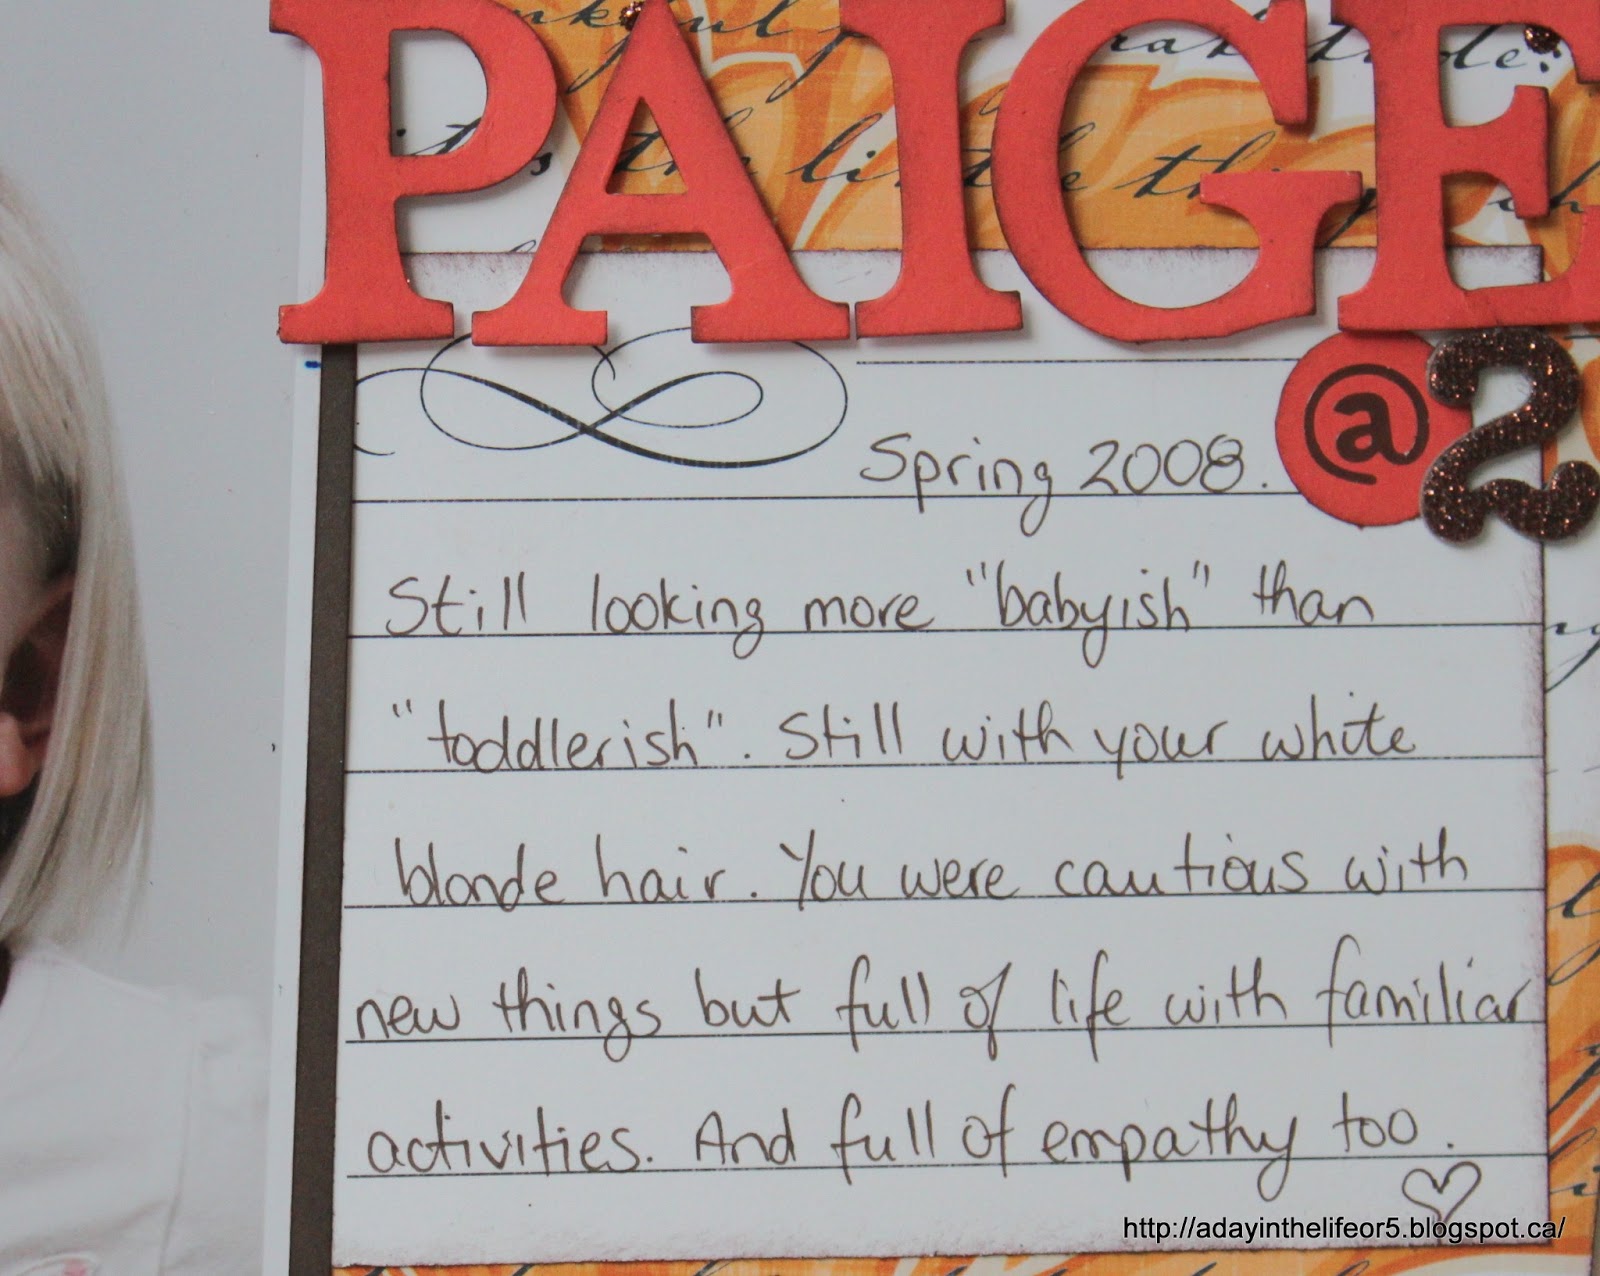 PAIGE
it's the little things
@2
Spring 2008.
Still looking more "babyish" than
"toddlerish". Still with your white
blonde hair. You were cautious with
new things but full of life with familiar
activities. And full of empathy too.
http://adayinthelifeor5.blogspot.ca/